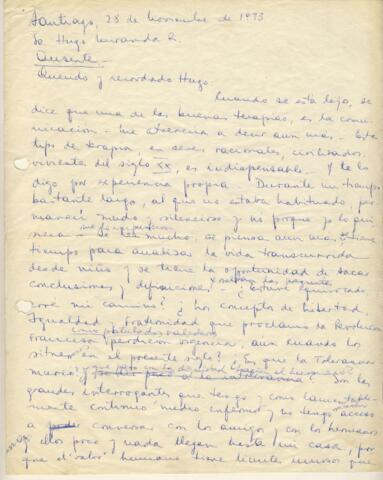 Santiago, 28 de Noviembre de 1973
Sr. Hugo Miranda R.
Presente.-
Querido y recordado Hugo
Cuando se está lejos, se
dice que una de las buenas terapias, es la comu-
nicación - me atrevería a decir aun mas - Este
tipo de terapia en seres racionales, civilizados,
vivientes del siglo XX, es indispensable. Y te lo
digo por experiencia propia. Durante un tiempo
bastante largo, al que no estaba habituado, per-
manecí mudo y silencioso y no porque yo lo qui-
siera - se lee mucho, se piensa aun mas, se tiene
tiempo para analizar la vida transcurrida
desde niños y se tiene la oportunidad de sacar
conclusiones y definiciones
¿estuve equivocado
erré mi camino? ¿Los conceptos de Libertad
Igualdad, Fraternidad que proclamó la Revolución
como postulados
Francesa perdieron vigencia, aun cuando los
sitúen en el presente siglo? ¿Es que la Tolerancia
murió?
Son las
grandes interrogantes que tengo y como lamentable-
mente continuo medio enfermo y no tengo acceso
a poder conversar con los amigos, con los hermanos
y ellos poco y nada llegan hasta mi casa, por
que el valor humano tiene límite
que